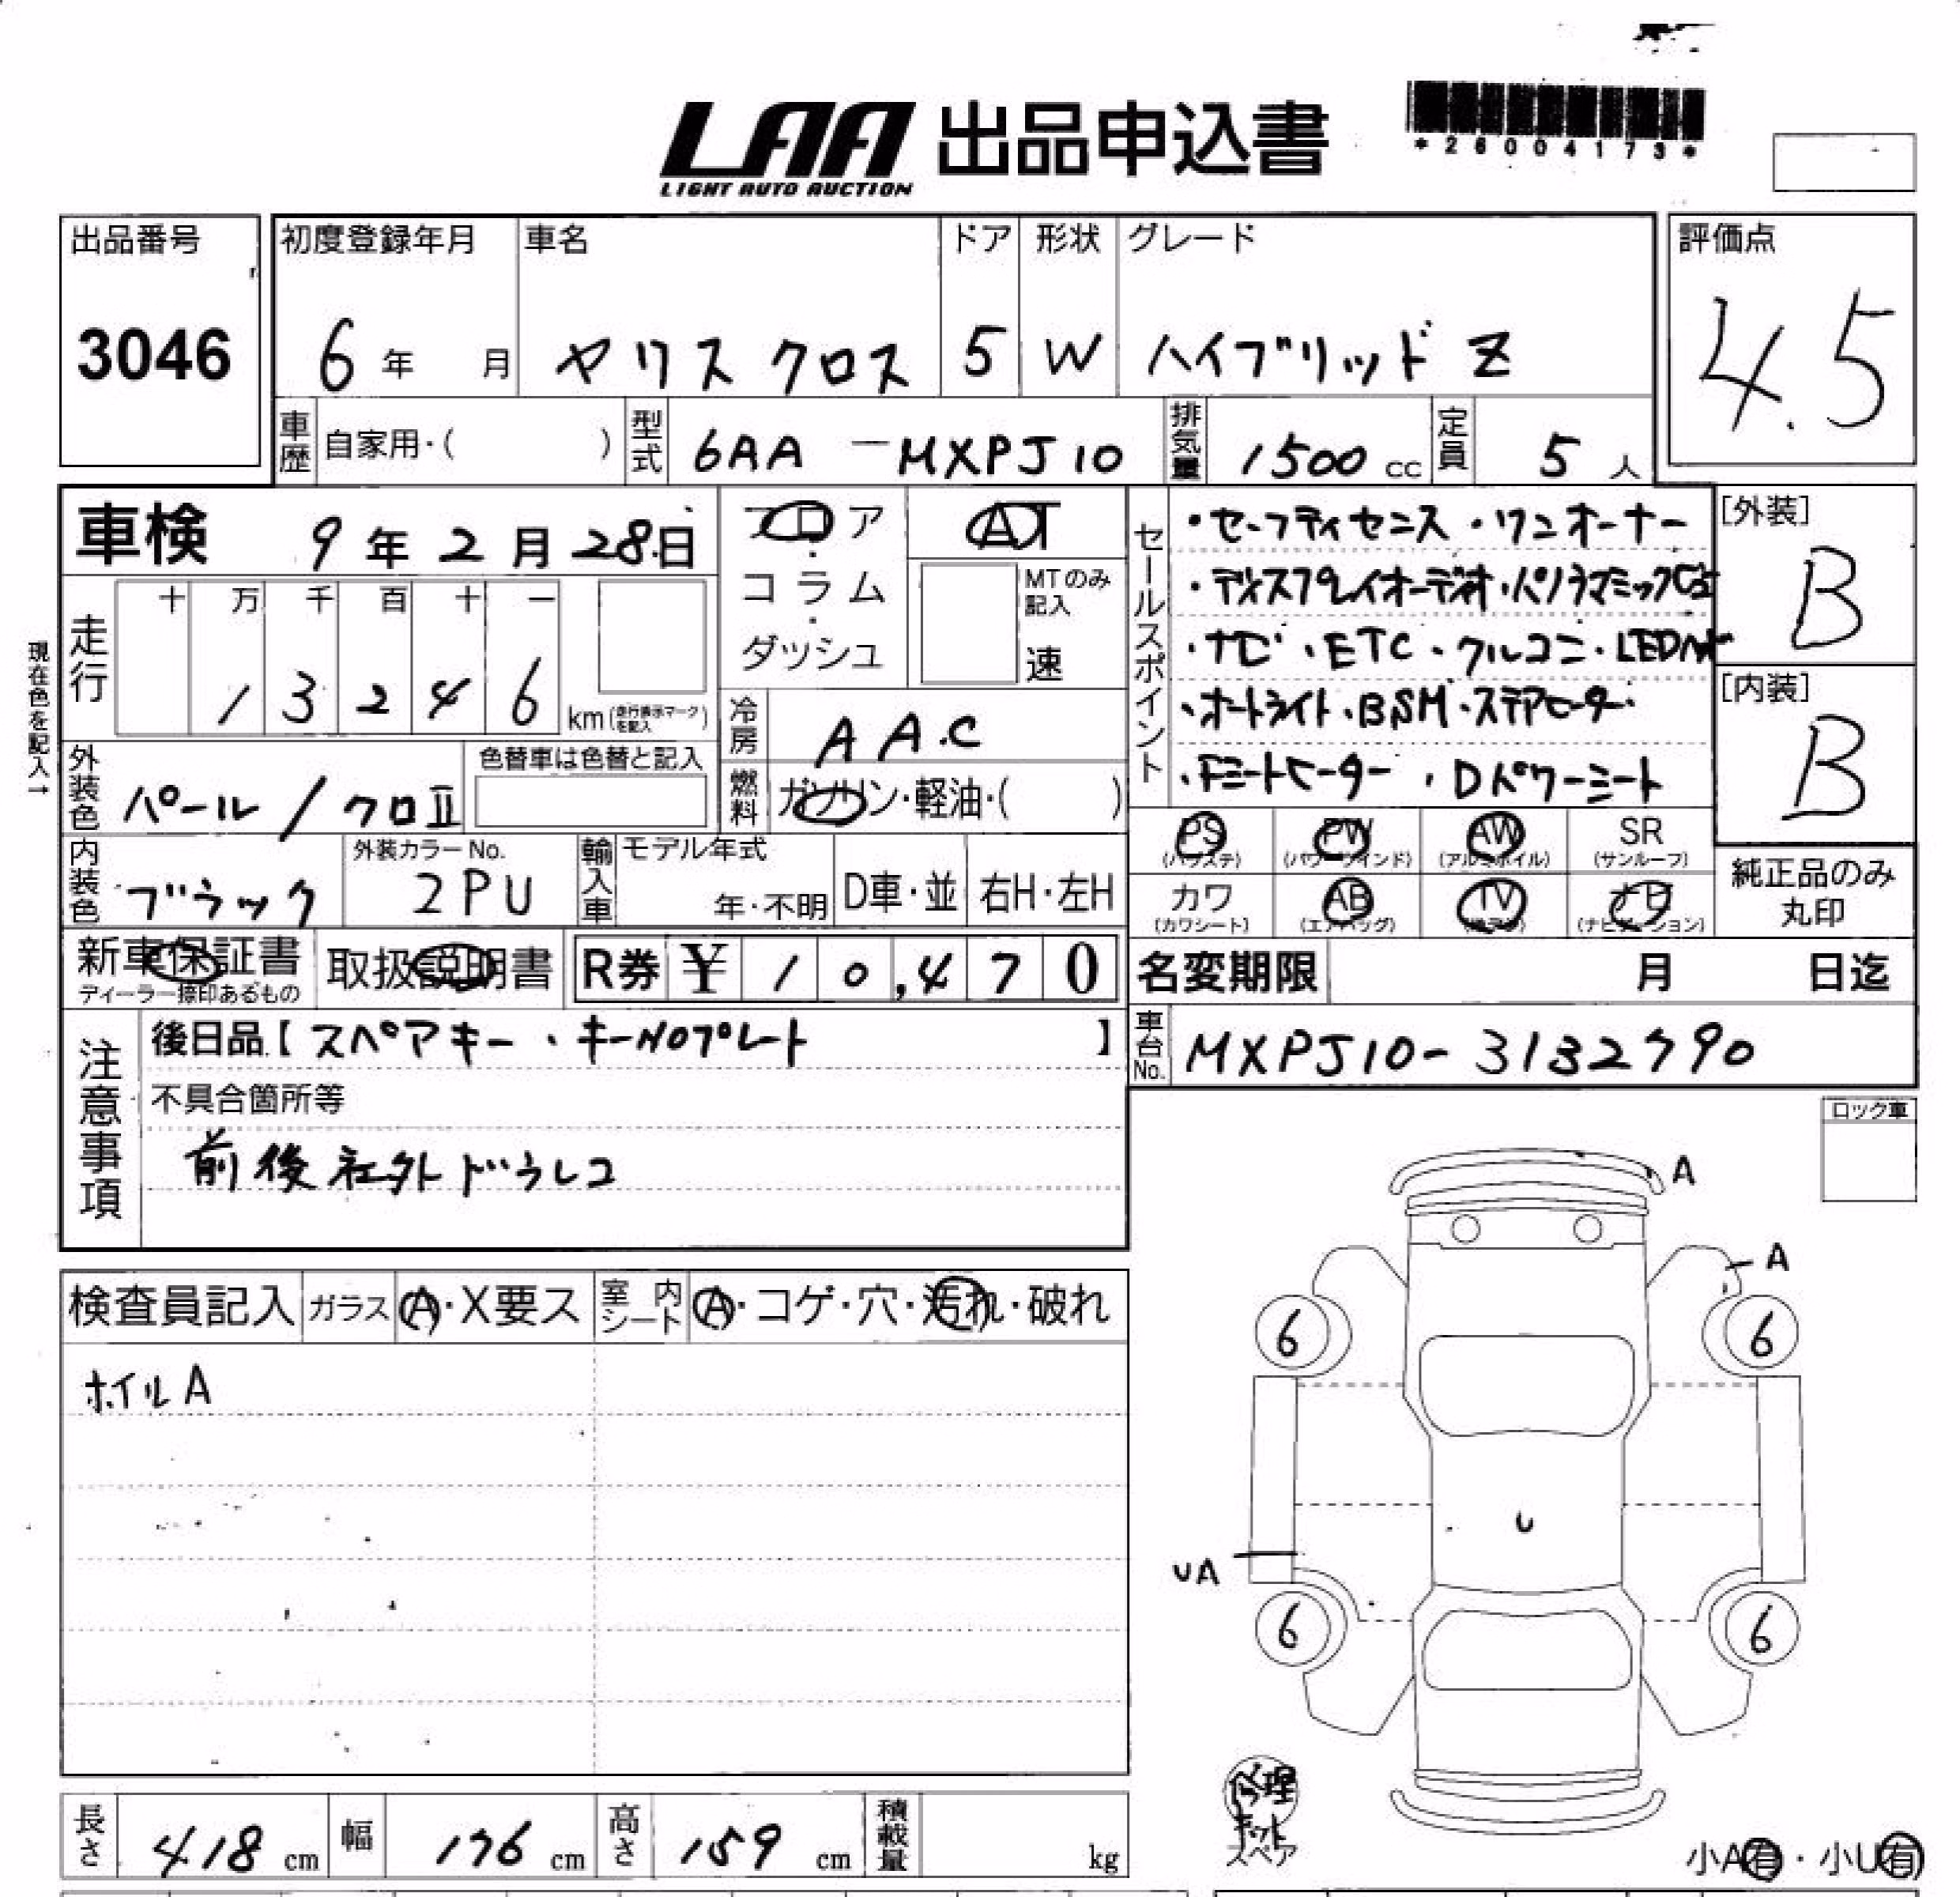 LAA 出品申込書
LIGHT AUTO AUCTION
*26004173*
出品番号
3046
初度登録年月 車名 ドア 形状 グレード
6年 月 ヤリス クロス 5 W ハイブリッド Z
評価点
4.5
車歴 自家用・( ) 型式 6AA-MXPJ10 排気量 1500 cc 定員 5 人
車検 9年2月28日
フロア
コラム
ダッシュ
AT
MTのみ記入
速
走行 十 万 千 百 十 一
1 3 2 4 6 km (走行表示マークを記入)
現在色を記入→
冷房 AAC
燃料 ガソリン・軽油・( )
外装色 パール/クロⅡ
色替車は色替と記入
内装色 ブラック
外装カラーNo.
2PU
輸入車 モデル年式
年・不明 D車・並 右H・左H
セールスポイント
・セーフティセンス・ワンオーナー
・ディスプレイオーディオ・パノラマミック
・ナビ・ETC・クルコン・LED
・オートライト・BSM・ステアヒーター
・Fシートヒーター ・Dパワーシート
[外装]
B
[内装]
B
PS (パワステ) PW (パワーウインド) AW (アルミホイル) SR (サンルーフ)
カワ (カワシート) AB (エアバッグ) TV ナビ (ナビゲーション)
純正品のみ丸印
新車保証書
ディーラー捺印あるもの
取扱説明書
R券 ¥ 10,470
名変期限 月 日迄
車台No. MXPJ10-3132790
注意事項
後日品【スペアキー、キーNOプレート】
不具合箇所等
前後社外ドラレコ
ロック車
検査員記入 ガラス A・X要ス 室内シート A・コゲ・穴・汚れ・破れ
ホイルA
A
A
6 6
U
UA
6 6
修理キット
スペア
長さ 418 cm 幅 176 cm 高さ 159 cm 積載量 kg
小A有・小U有